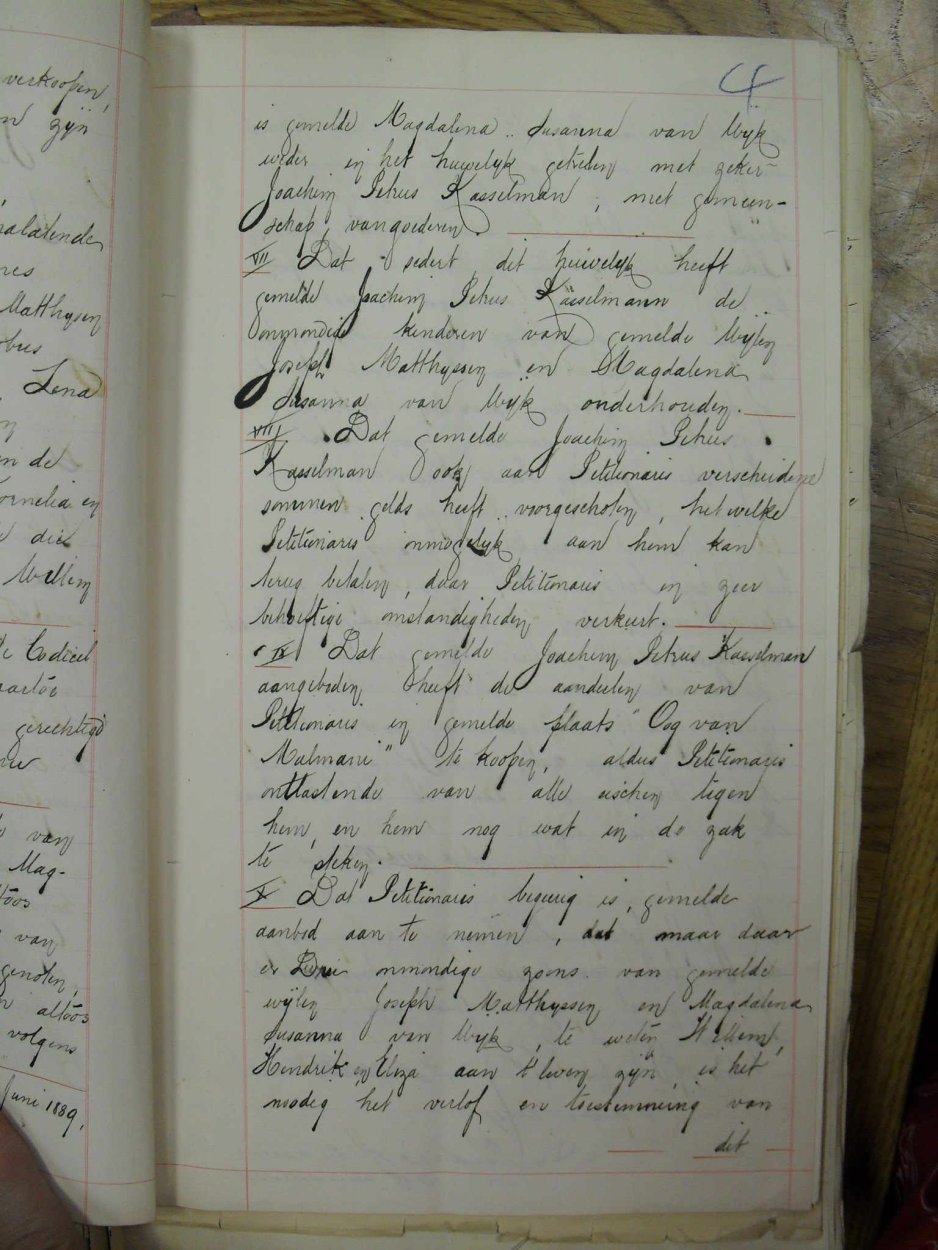 verkoopen,
zijn
nalatende
Matthysen
Lena
en de
Cornelia en
die
Willem
Codicil
gerechtigd
van
Mag-
van
genoten,
altoos
volgens
Juni 1889,
4
is gemelde Magdalena Susanna van Wyk
weder in het huwelyk getreden met zeker
Joachim Petrus Kasselman, met gemeen-
schap van goederen.
VII Dat sedert dit huwelyk heeft
gemelde Joachim Petrus Kasselmann de
onmondige kinderen van gemelde Wijlen
Joseph Matthyssen en Magdalena
Susanna van Wyk onderhouden.
VIII Dat gemelde Joachim Petrus
Kasselman ook aan Petitionaris verscheidene
sommen gelds heeft voorgeschoten, hetwelke
Petitionaris onmogelyk aan hem kan
terug betalen, daar Petitionaris in zeer
behoeftige omstandigheden verkeert.
IX Dat gemelde Joachim Petrus Kasselman
aangeboden heeft de aandeelen van
Petitionaris in gemelde plaats "Oog van
Malmani" te koopen, aldus Petitionaris
ontlastende van alle eischen tegen
hem, en hem nog wat in de zak
te steken.
X Dat Petitionaris begeerig is, gemelde
aanbod aan te nemen, dat maar daar
er Drie onmondige zoons van gemelde
wijlen Joseph Matthyssen en Magdalena
Susanna van Wyk, te weten Willem,
Hendrik en Eliza aan 't leven zijn, is het
noodig het verlof en toestemming van
dit